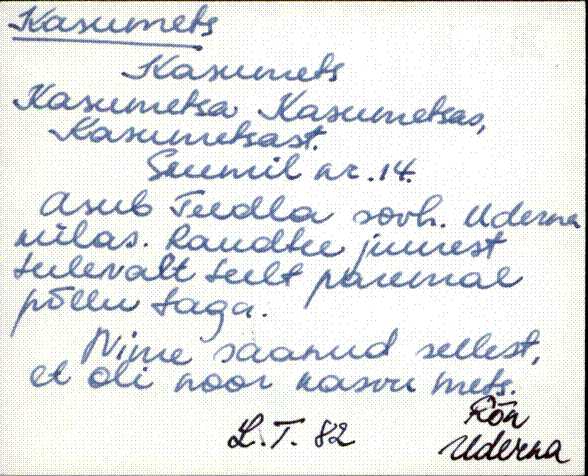 Kasumets
Kasumets
Kasumetsa Kasumetsas,
Kasumetsast.
Suumil nr. 14.
Asub Teedla sovh. Uderna
külas. Raudtee juurest
tulevalt teelt paremal
põllu taga.
Nime saanud sellest,
et oli noor kasvu mets.
L. T. 82
Rõn
Uderna